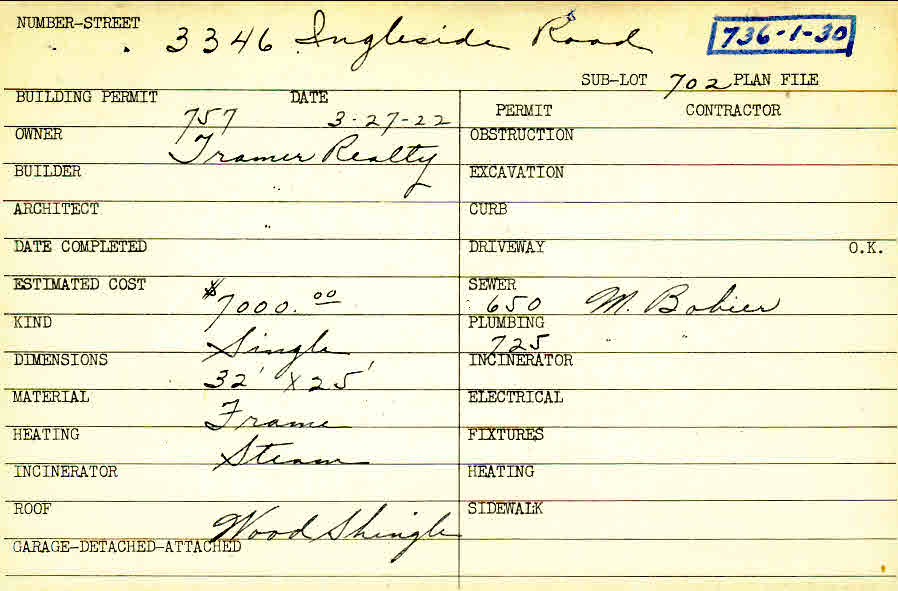 NUMBER-STREET 3346 Ingleside Road 736-1-30
SUB-LOT 702 PLAN FILE
BUILDING PERMIT 757 DATE 3-27-22
PERMIT CONTRACTOR
OWNER Framer Realty
OBSTRUCTION
BUILDER "
EXCAVATION
ARCHITECT "
CURB
DATE COMPLETED
DRIVEWAY O.K.
ESTIMATED COST $7000.00
SEWER 650 M. Bobier
KIND Single
PLUMBING 725 " "
DIMENSIONS 32' X 25'
INCINERATOR
MATERIAL Frame
ELECTRICAL
HEATING Steam
FIXTURES
INCINERATOR
HEATING
ROOF Wood Shingle
SIDEWALK
GARAGE-DETACHED-ATTACHED